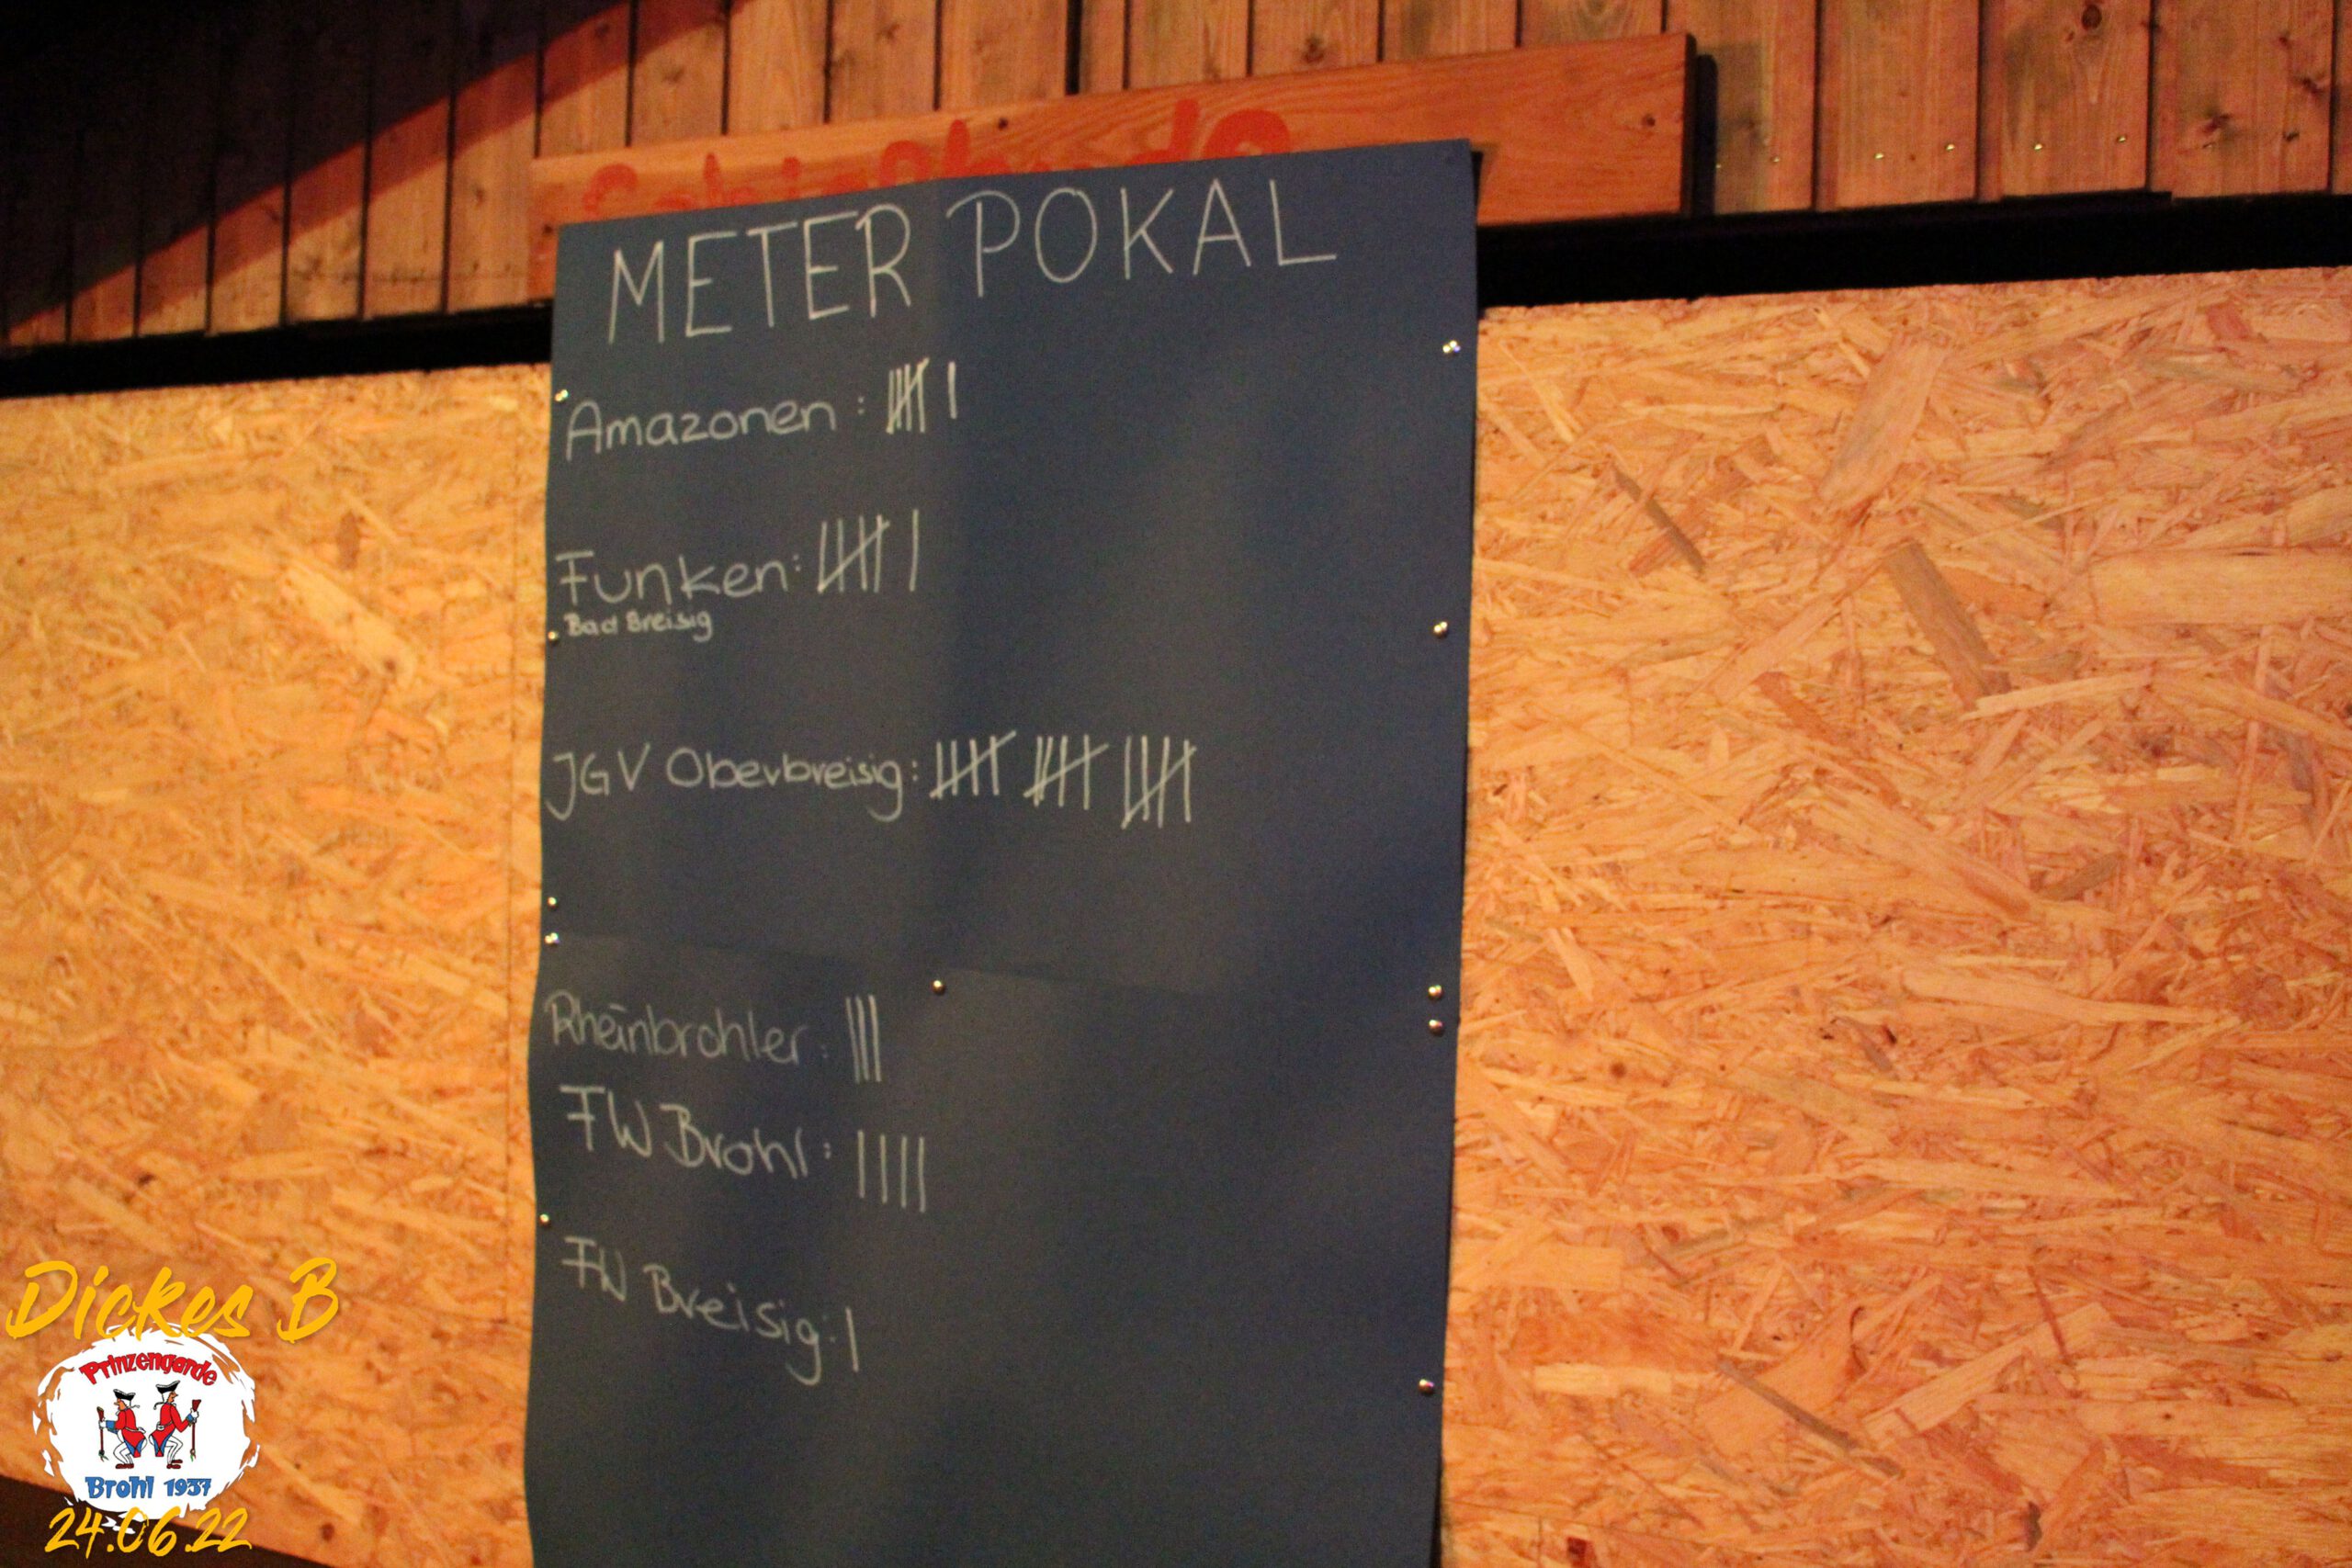 METER POKAL
Amazonen: 卌 |
Funken: 卌 |
Bad Breisig
JGV Oberbreisig: 卌 卌 卌
Rheinbrohler: |||
FW Brohl: ||||
FW Breisig: |
Dickes B
Prinzengarde
Brohl 1937
24.06.22